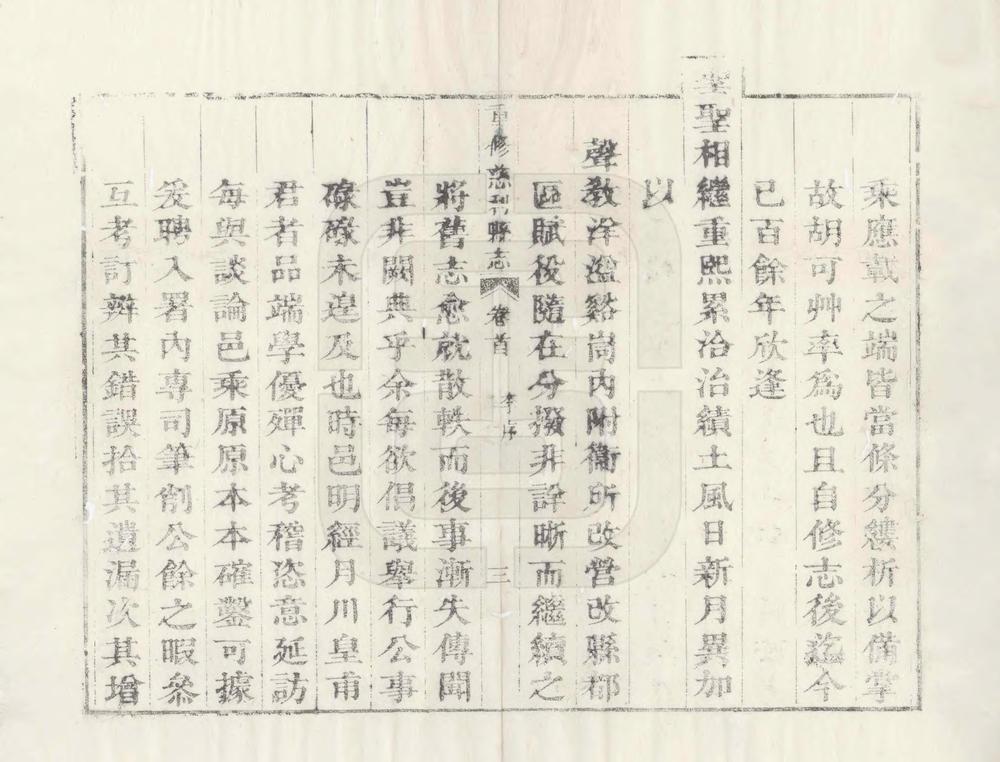 乘應載之端皆當條分縷析以備掌
故胡可艸率爲也且自修志後迄今
已百餘年欣逢
聖聖相繼重熙累洽治績土風日新月異加
以
聲教洋溢谿峝內附衞所改營改縣都
區賦役隨在分撥非詮晰而繼續之
重修慈利縣志 卷首 李序 三
將舊志愈就散軼而後事漸失傳聞
豈非闕典乎余每欲倡議舉行公事
碌碌未遑及也時邑明經月川皇甫
君者品端學優殫心考稽恣意延訪
每與談論邑乘原原本本確鑿可據
爰聘入署內專司筆削公餘之暇叅
互考訂辨其錯誤拾其遺漏次其增